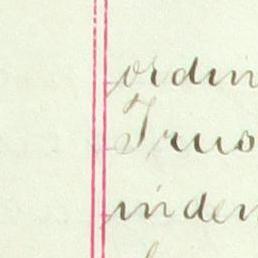 ordin
Trus
inden